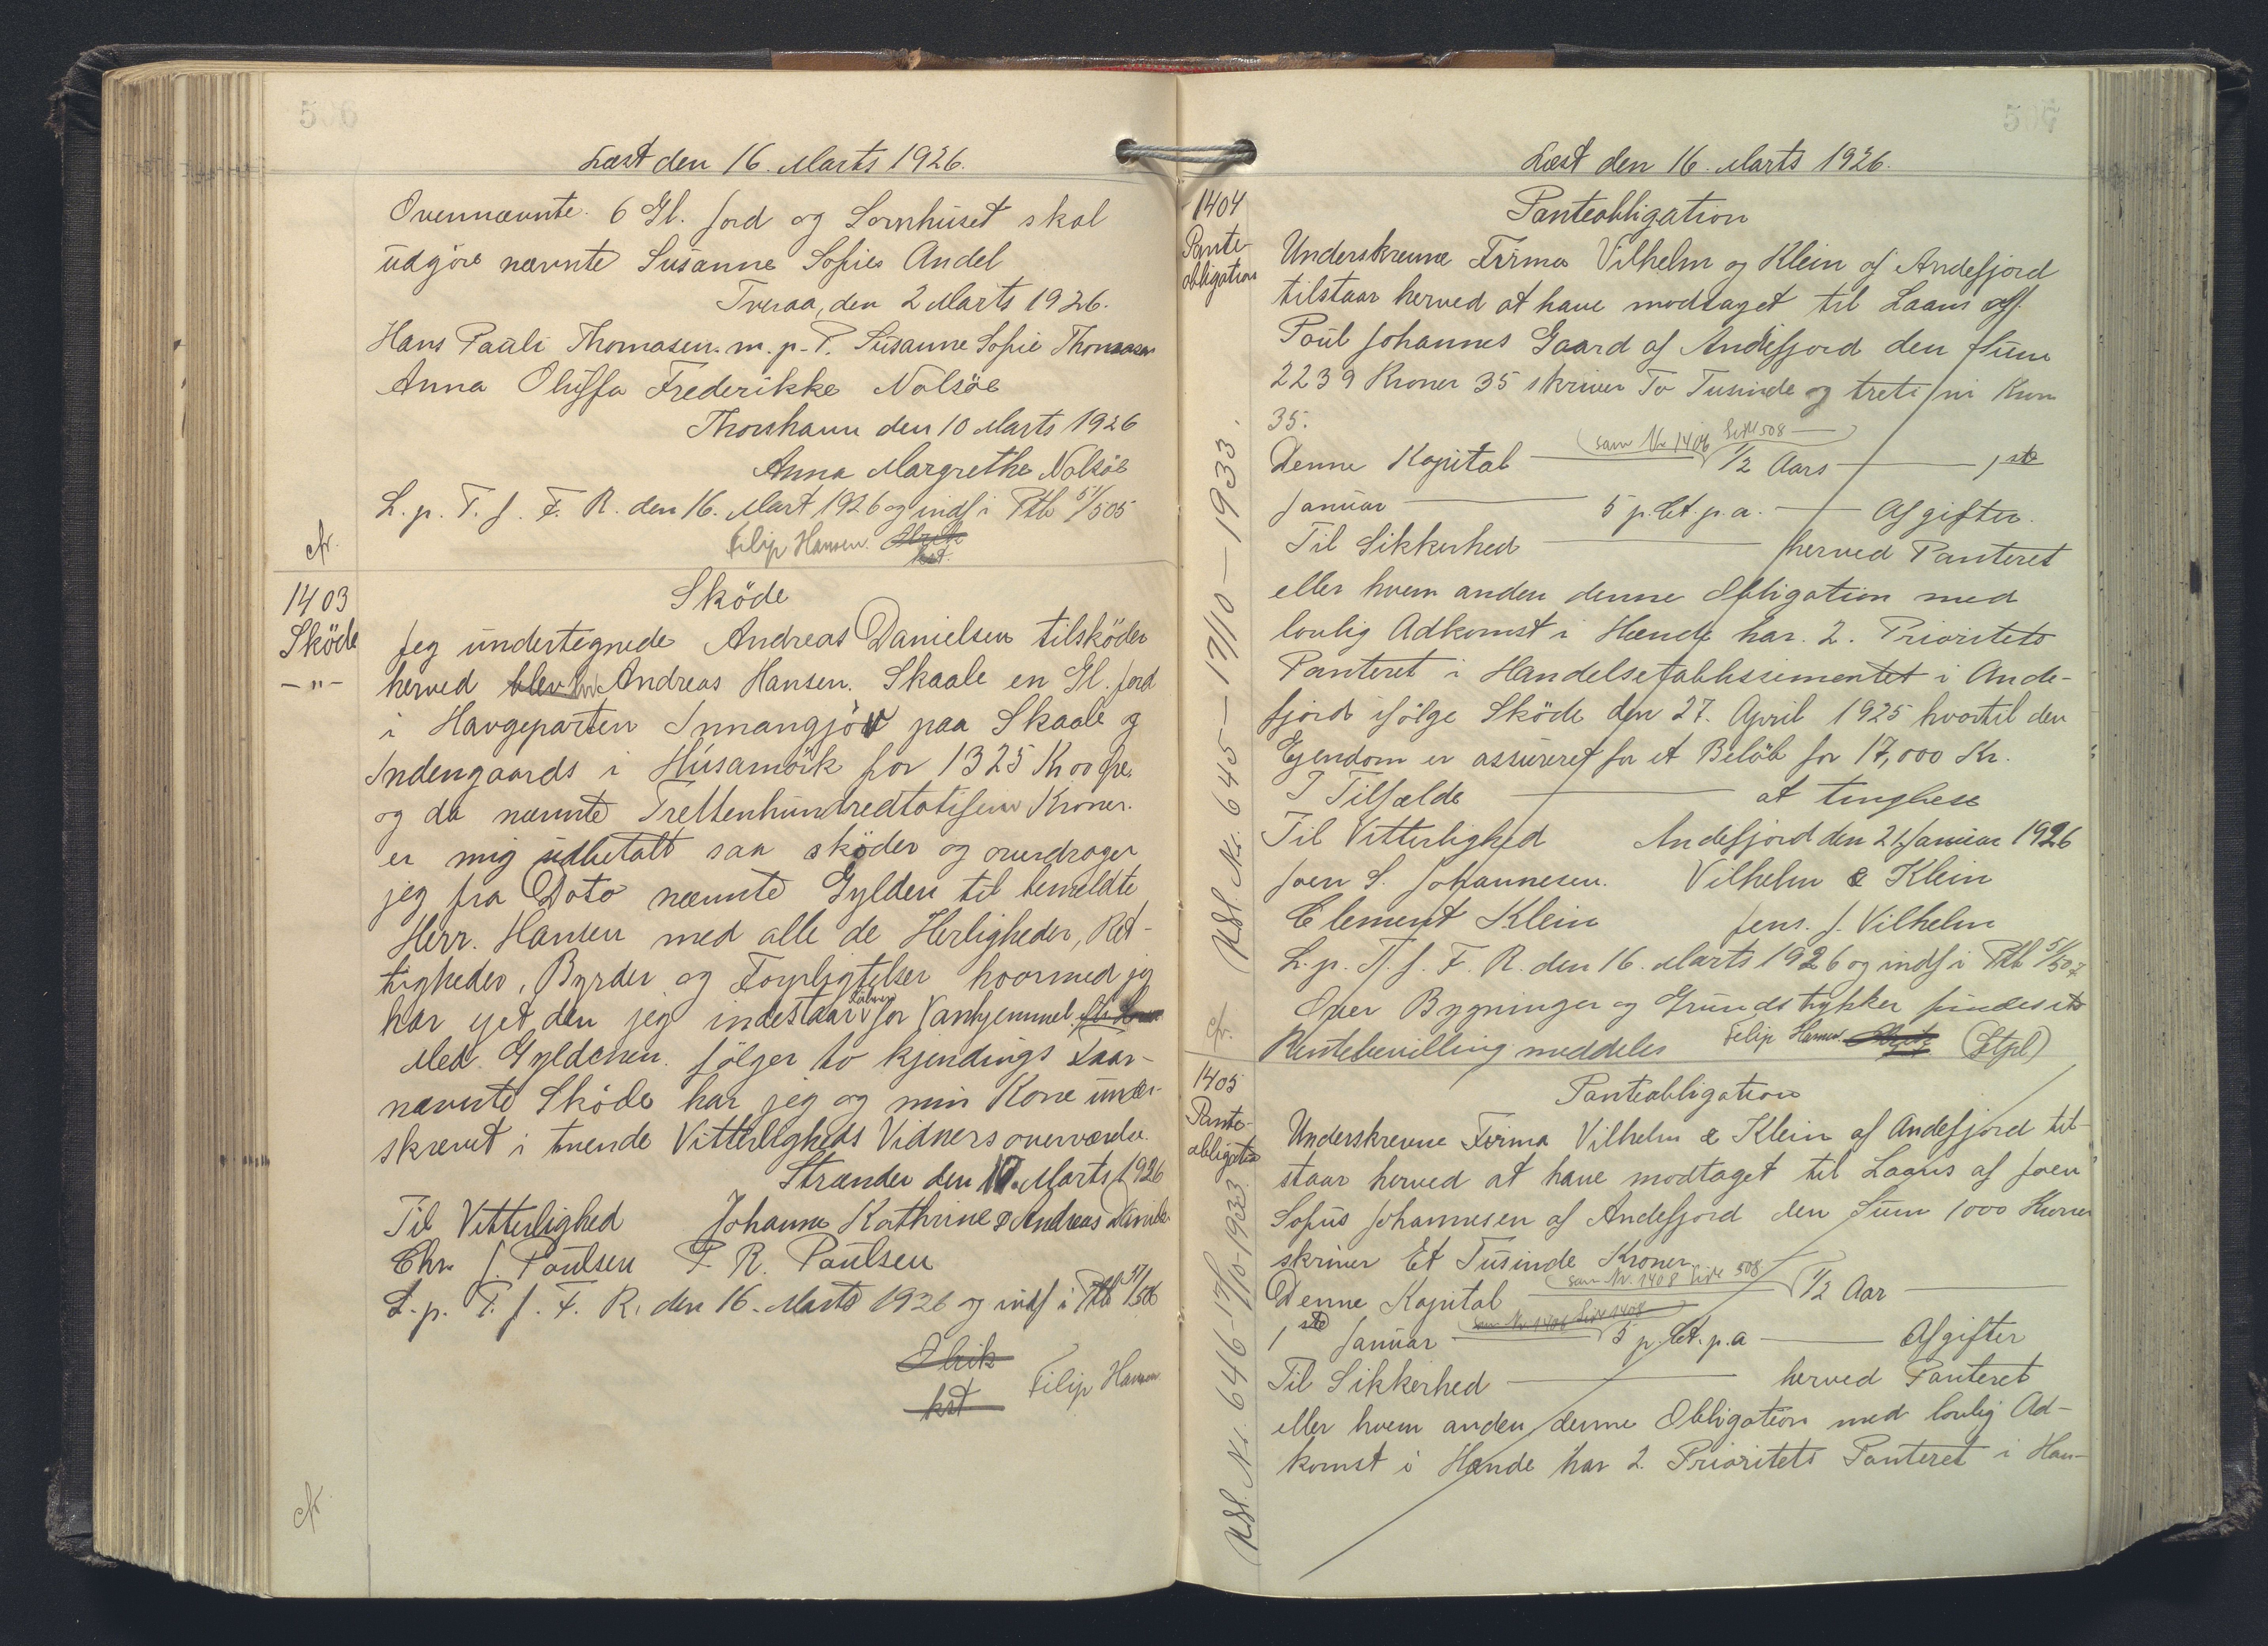 506
Læst den 16. Marts 1926.
Ovennævnte 6 Gl. Jord og Lornhuset skal
udgöre nævnte Susanne Sofies Andel
Tveraa, den 2 Marts 1926.
Hans Pauli Thomasen. m. p. T. Susanne Sofie Thomasen
Anna Oluffa Frederikke Nolsöe
Thorshavn den 10 Marts 1926
Anna Margrethe Nolsöe
L. p. T. f. F. R. den 16. Mart 1926 og indf i Ptb 51/505
Filip Hansen.
cfr.
1403
Sköde
-"-
Sköde
Jeg undertegnede Andreas Danielsen tilsköder
herved Andreas Hansen. Skaale en Gl. Jord
i Havgeparten Innangjöv paa Skaale og
Indengaards i Húsamörk for 1325 Kr 00 Øre.
og da nævnte Trettenhundredtotifem Kroner.
er mig udbetalt saa sköder og overdrager
jeg fra Dato nævnte Gylden til bemeldte
Herr. Hansen med alle de Herligheder, Ret-
tigheder, Byrder og Forpligtelser hvormed jeg
har ejet den jeg indestaar for Vanhjemmel
Med Gyldenen følger to kjendings
nævnte Sköde har jeg og min Kone under-
skrevet i tvende Vitterligheds Vidners overværelse.
Strænder den 10. Marts 1926
Til Vitterlighed Johanne Kathrine & Andreas Danielsen
Chr. J. Poulsen P. R. Poulsen
L. p. T. f. F. R. den 16. Marts 1926 og indf i Ptb 51/506
Filip Hansen
cfr.
507
Læst den 16. Marts 1926.
1404
Pante-
obligation
Panteobligation
Underskrevne Firma Vilhelm og Klein af Andefjord
tilstaar herved at have modtaget til Laans af
Poul Johannes Gaard af Andefjord den Sum
2239 Kroner 35 skriver To Tusinde og treti ni Kron
35.
(sam Nr 1406 Side 508)
Denne Kapital ½ Aars 1ste
Januar 5 p. Ct. p. a. Afgifter.
Til Sikkerhed herved Panteret
eller hvem anden denne Obligation med
lovlig Adkomst i Hænde har. 2. Prioritets
Panteret i Handelsetablissementet i Ande-
fjord ifölge Sköde den 27. April 1925 hvortil den
Ejendom er assureret for et Belöb for 17,000 Kr.
I Tilfælde at tinglese
Til Vitterlighed Andefjord den 21 Januar 1926
Joen S. Johannesen. Vilhelm & Klein
Clement Klein Jens. J. Vilhelm
L. p. T. f. F. R. den 16. Marts 1926 og indf i Ptb 51/507
Over Bygninger og Grundstykker findes
Rentebevilling meddeles Filip Hansen. (Stpl)
Udsl. Nr. 645 — 17/10 — 1933.
cfr.
1405
Pante-
obligation
Panteobligation
Underskrevne Firma Vilhelm & Klein af Andefjord til-
staar herved at have modtaget til Laans af Joen
Sofus Johannesen af Andefjord den Sum 1000 Kroner
skriver Et Tusinde Kroner
sam Nr. 1408 Side 508
Denne Kapital ½ Aar
sam Nr. 1406 Side 1408
1ste Januar 5 p. Ct. p. a Afgifter
Til Sikkerhed herved Panteret
eller hvem anden denne Obligation med lovlig Ad-
komst i Hænde har 2. Prioritets Panteret i Han-
Udsl. Nr. 646 - 17/10 - 1933